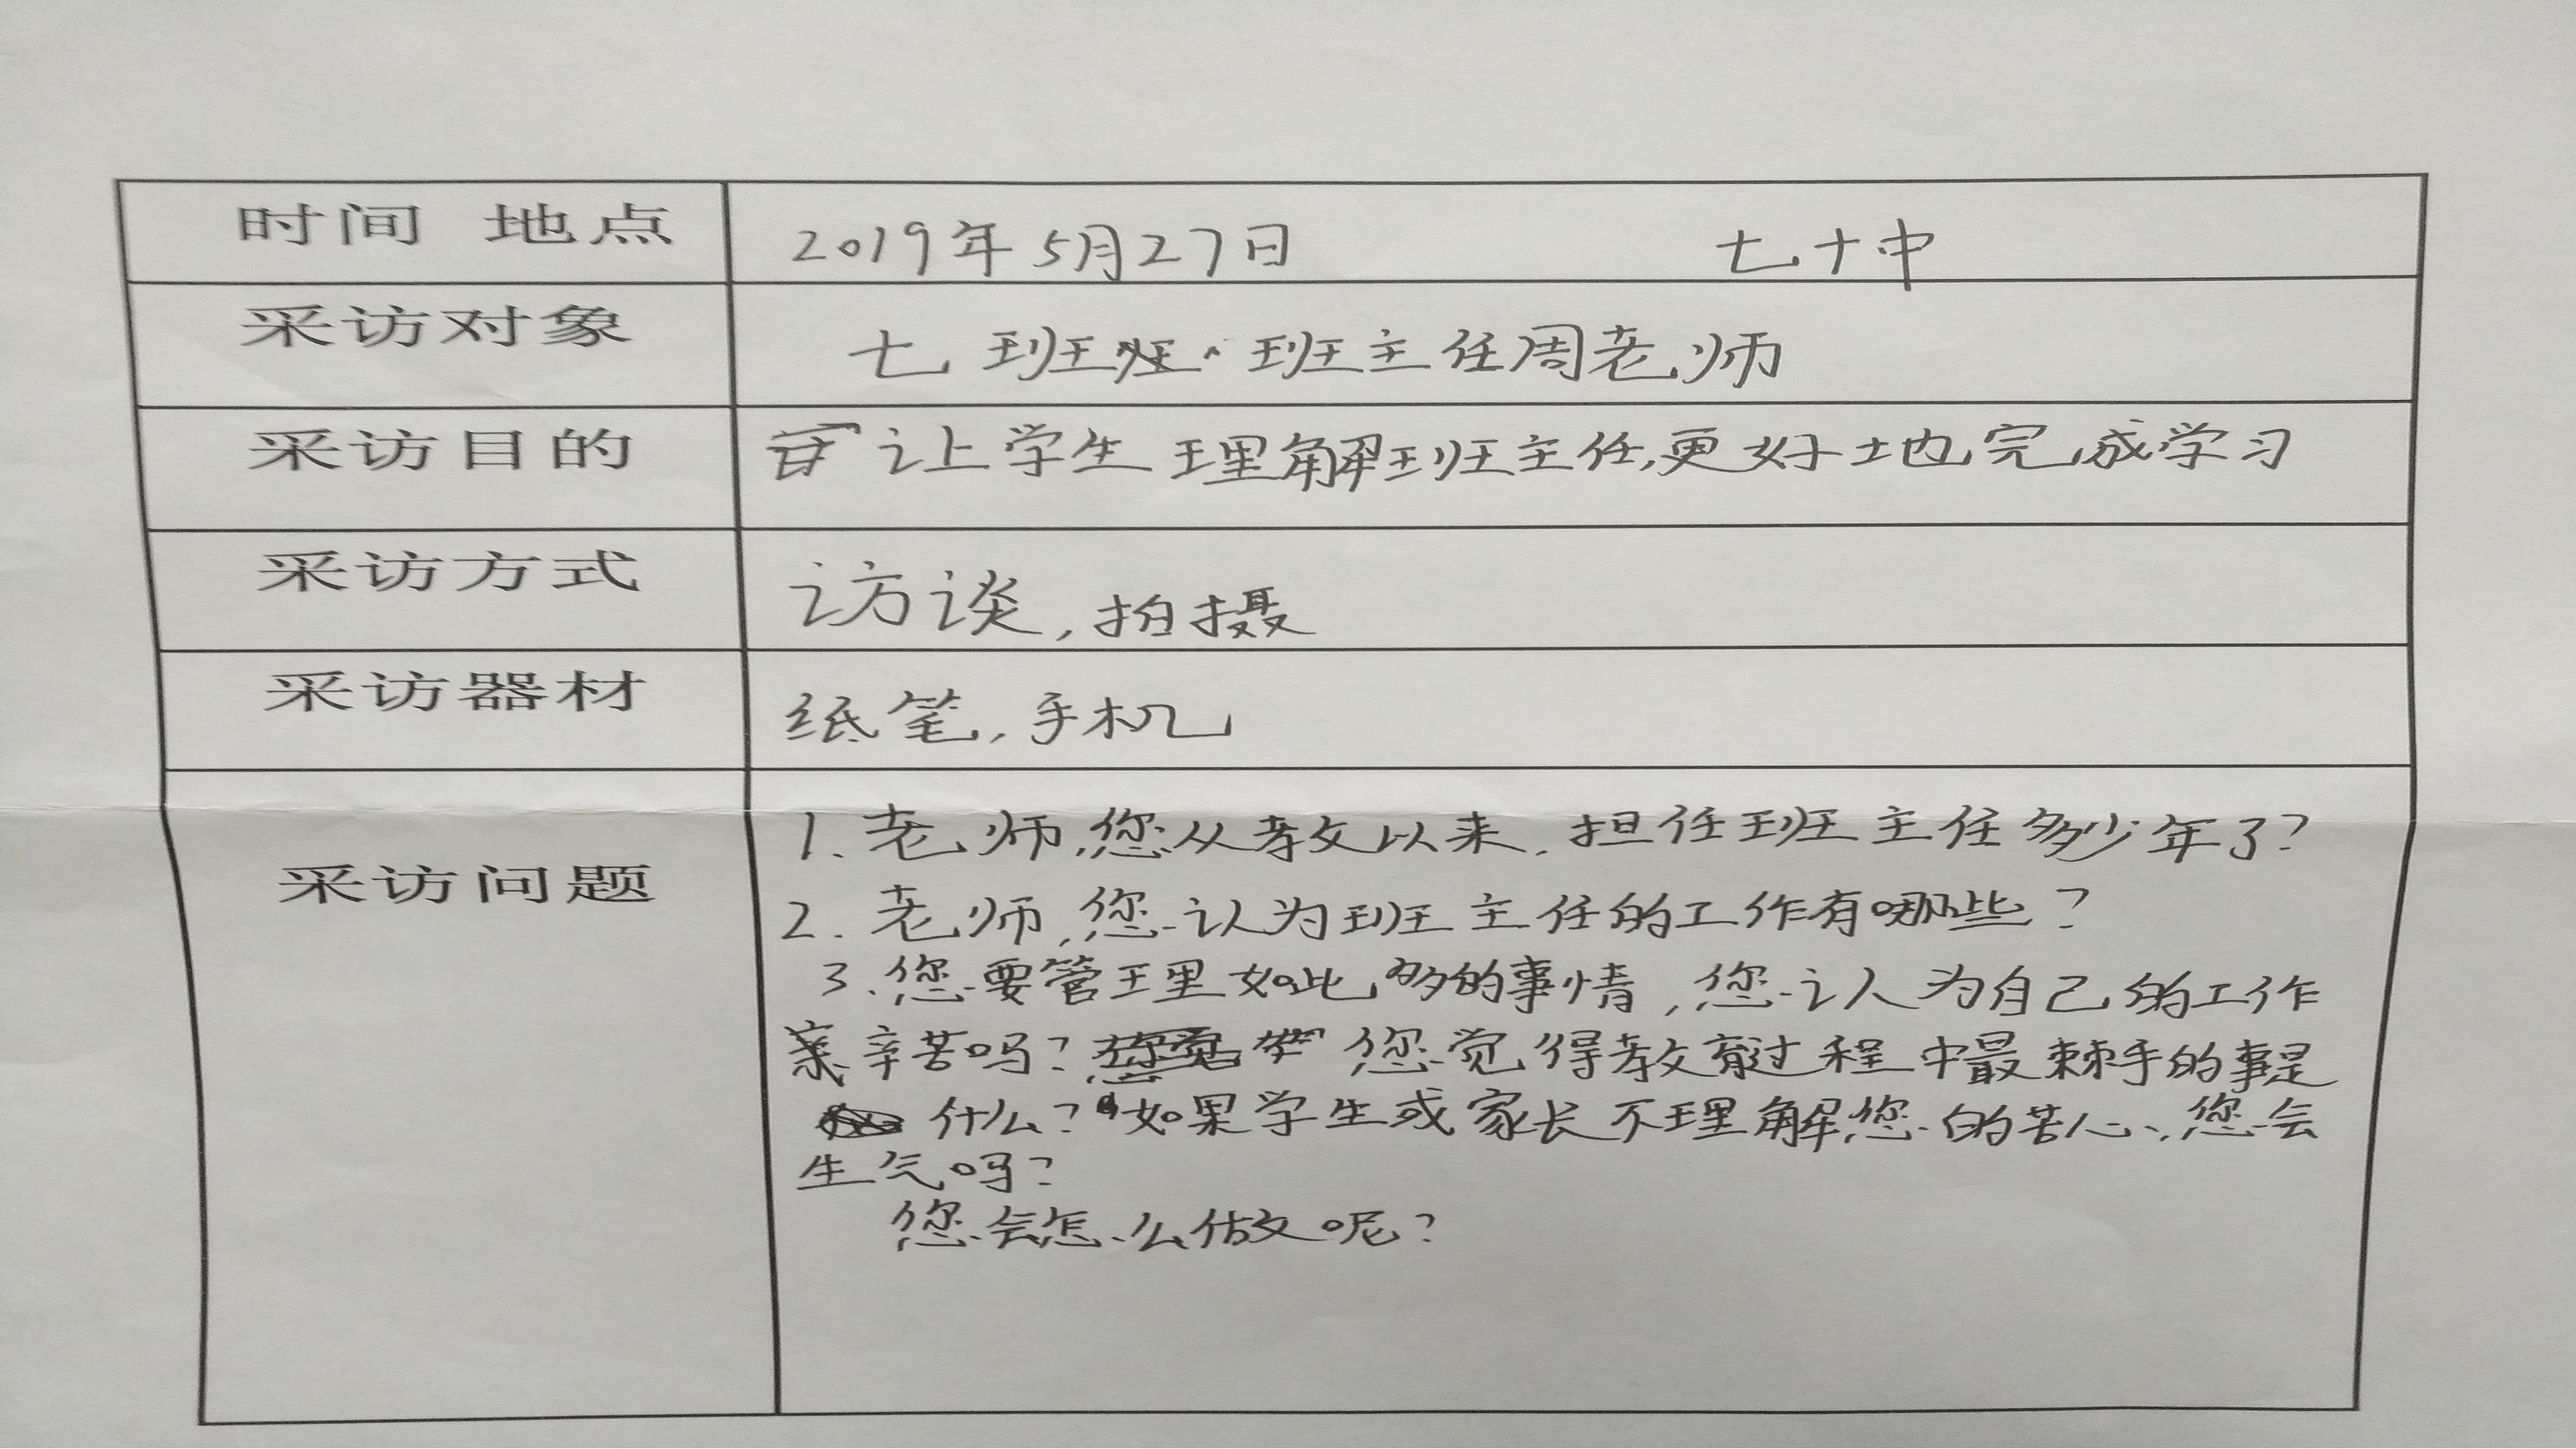 时间 地点 2019年5月27日 七十中
采访对象 七班 班主任周老师
采访目的 让学生理解班主任,更好地完成学习
采访方式 访谈,拍摄
采访器材 纸笔,手机
采访问题
1.老师,您从教以来,担任班主任多少年了?
2.老师,您认为班主任的工作有哪些?
3.您要管理如此多的事情,您认为自己的工作
辛苦吗? 您觉得教育过程中最棘手的事是
什么?如果学生或家长不理解您的苦心,您会
生气吗?
您会怎么做呢?